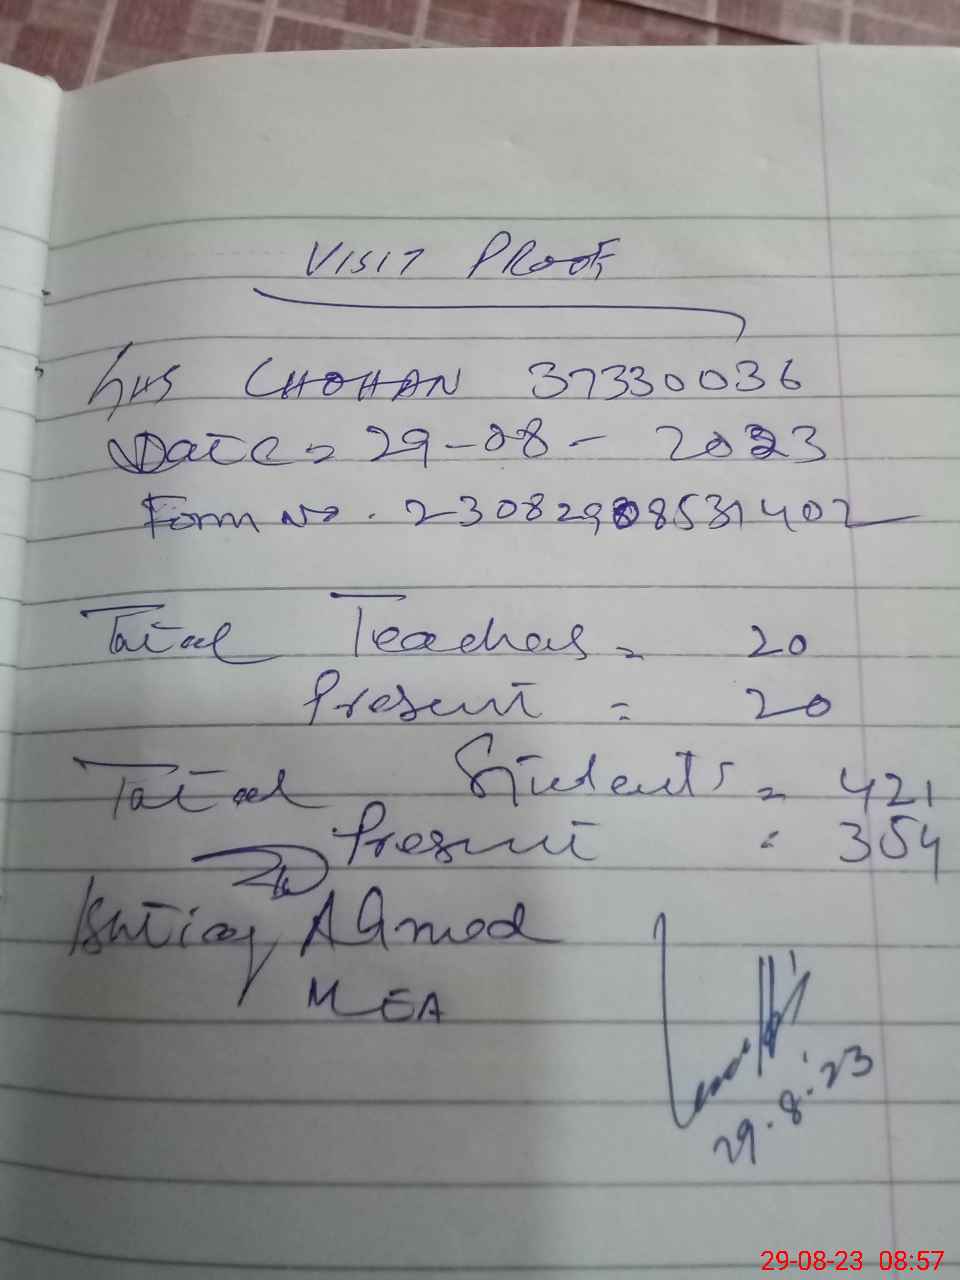 VISIT PROOF
GHS CHOHAN 37330036
Date = 29-08-2023
Form No. 23082908531402
Total Teachers = 20
Present = 20
Total Students = 421
Present : 354
Ishtiaq Ahmad
MEA
29.8.23
29-08-23 08:57